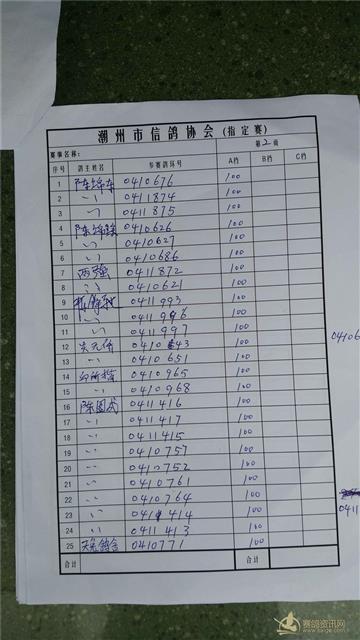 潮州市信鸽协会(指定赛)
赛事名称: 第2页
序号 鸽主姓名 参赛鸽环号 A档 B档 C档
1 0410676 100
2 〃 0411874 100
3 〃 0411875 100
4 0410626 100
5 〃 0410627 100
6 〃 0410686 100
7 0411872 100
8 〃 0410621 100
9 0411993 100
10 〃 100
11 〃 0411997 100
12 100
13 〃 0410651 100
14 0410965 100
15 〃 0410968 100
16 0411416 100
17 〃 0411417 100
18 〃 0411415 100
19 〃 0410757 100
20 〃 0410752 100
21 〃 0410761 100
22 〃 0410764 100
23 〃 100
24 〃 0411413 100
25 0410771 100
合计 合计
04106
0411
赛鸽资讯网
www.saige.com